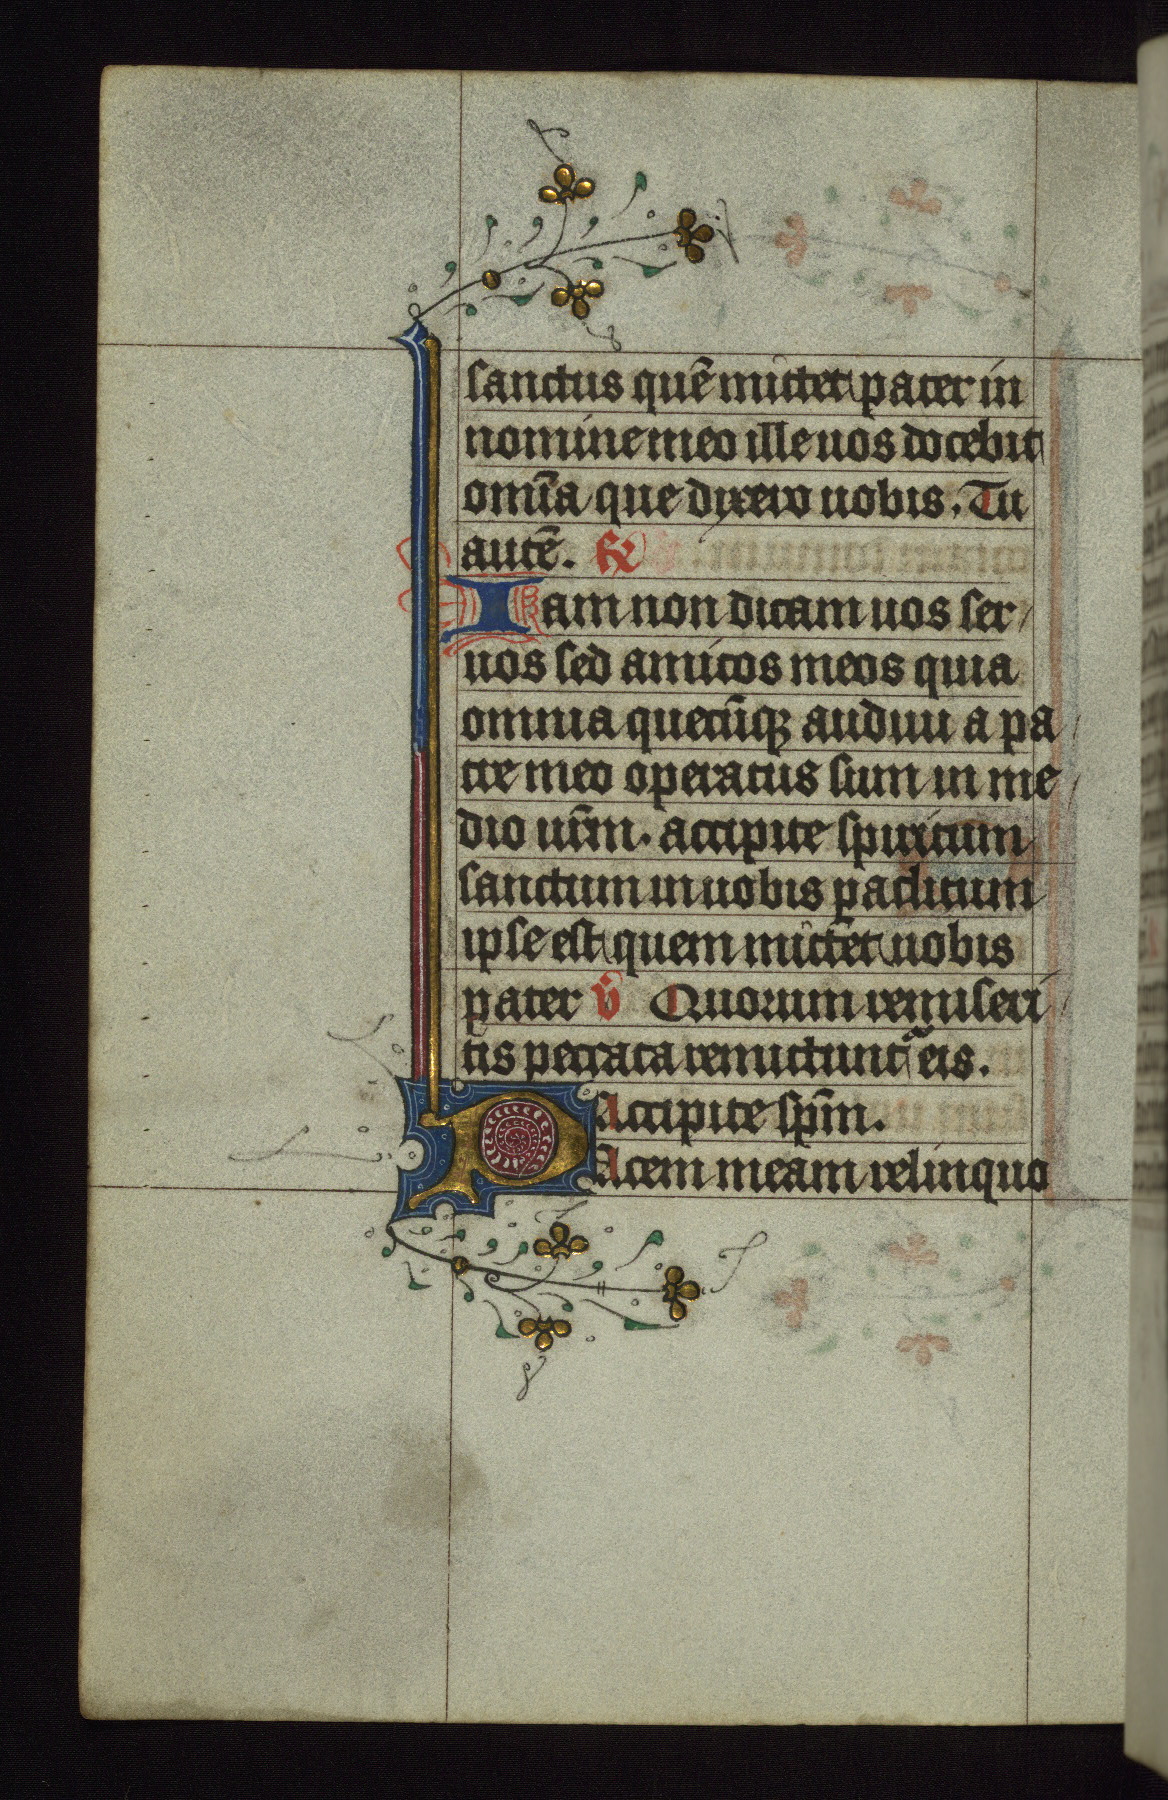 sanctus quē mittet pater in
nomine meo ille uos docebit
om̄ia que dixero uobis. Tu
autē. ℟
Iam non dicam uos ser
uos sed amicos meos quia
omnia quecūqꝫ audiui a pa
tre meo operatus sum in me
dio ur̄m. accipite spiritum
sanctum in uobis ꝑaclitum
ipse est quem mittet uobis
pater ℣ Quorum remiseri
tis peccata remittunt᷑ eis.
Accipite sp̄m.
PAcem meam relinquo